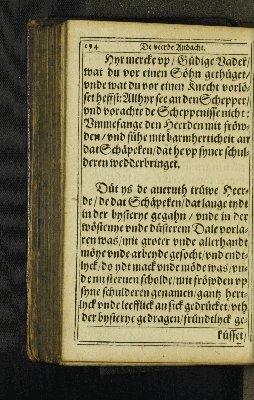 194 De veerde Andacht.
Hyr mercke vp / Güdige Vader /
wat du vor einen Söhn gethüget /
vnde wat du vor einen Knecht vorlö-
set heffst: Allhyr see an den Schepper /
vnd vorachte de Scheppenisse nicht:
Vmmefange den Heerden mit fröw-
den / vnd sühe mit barmherticheit an
dat Schäpeken / dat he vp syner schul-
deren wedderbringet.
Düt ys de aueruth trüwe Heer-
de / de dat Schäpeken / dat lange tydt
in der bysterye gegahn / vnde in der
wöstenye vnde düsterem Dale vorla-
ren was / mit groter vnde allerhandt
möye vnde arbeyde gesocht / vnd endt-
lyck / do ydt mack vnde möde was / vn-
de nu steruen scholde / mit fröwden vp
syne schulderen genamen / gantz hert-
lyck vnde leefflick an sick gedrücket / vth
der bysterye gedragen / fründtlyck ge-
küsset /